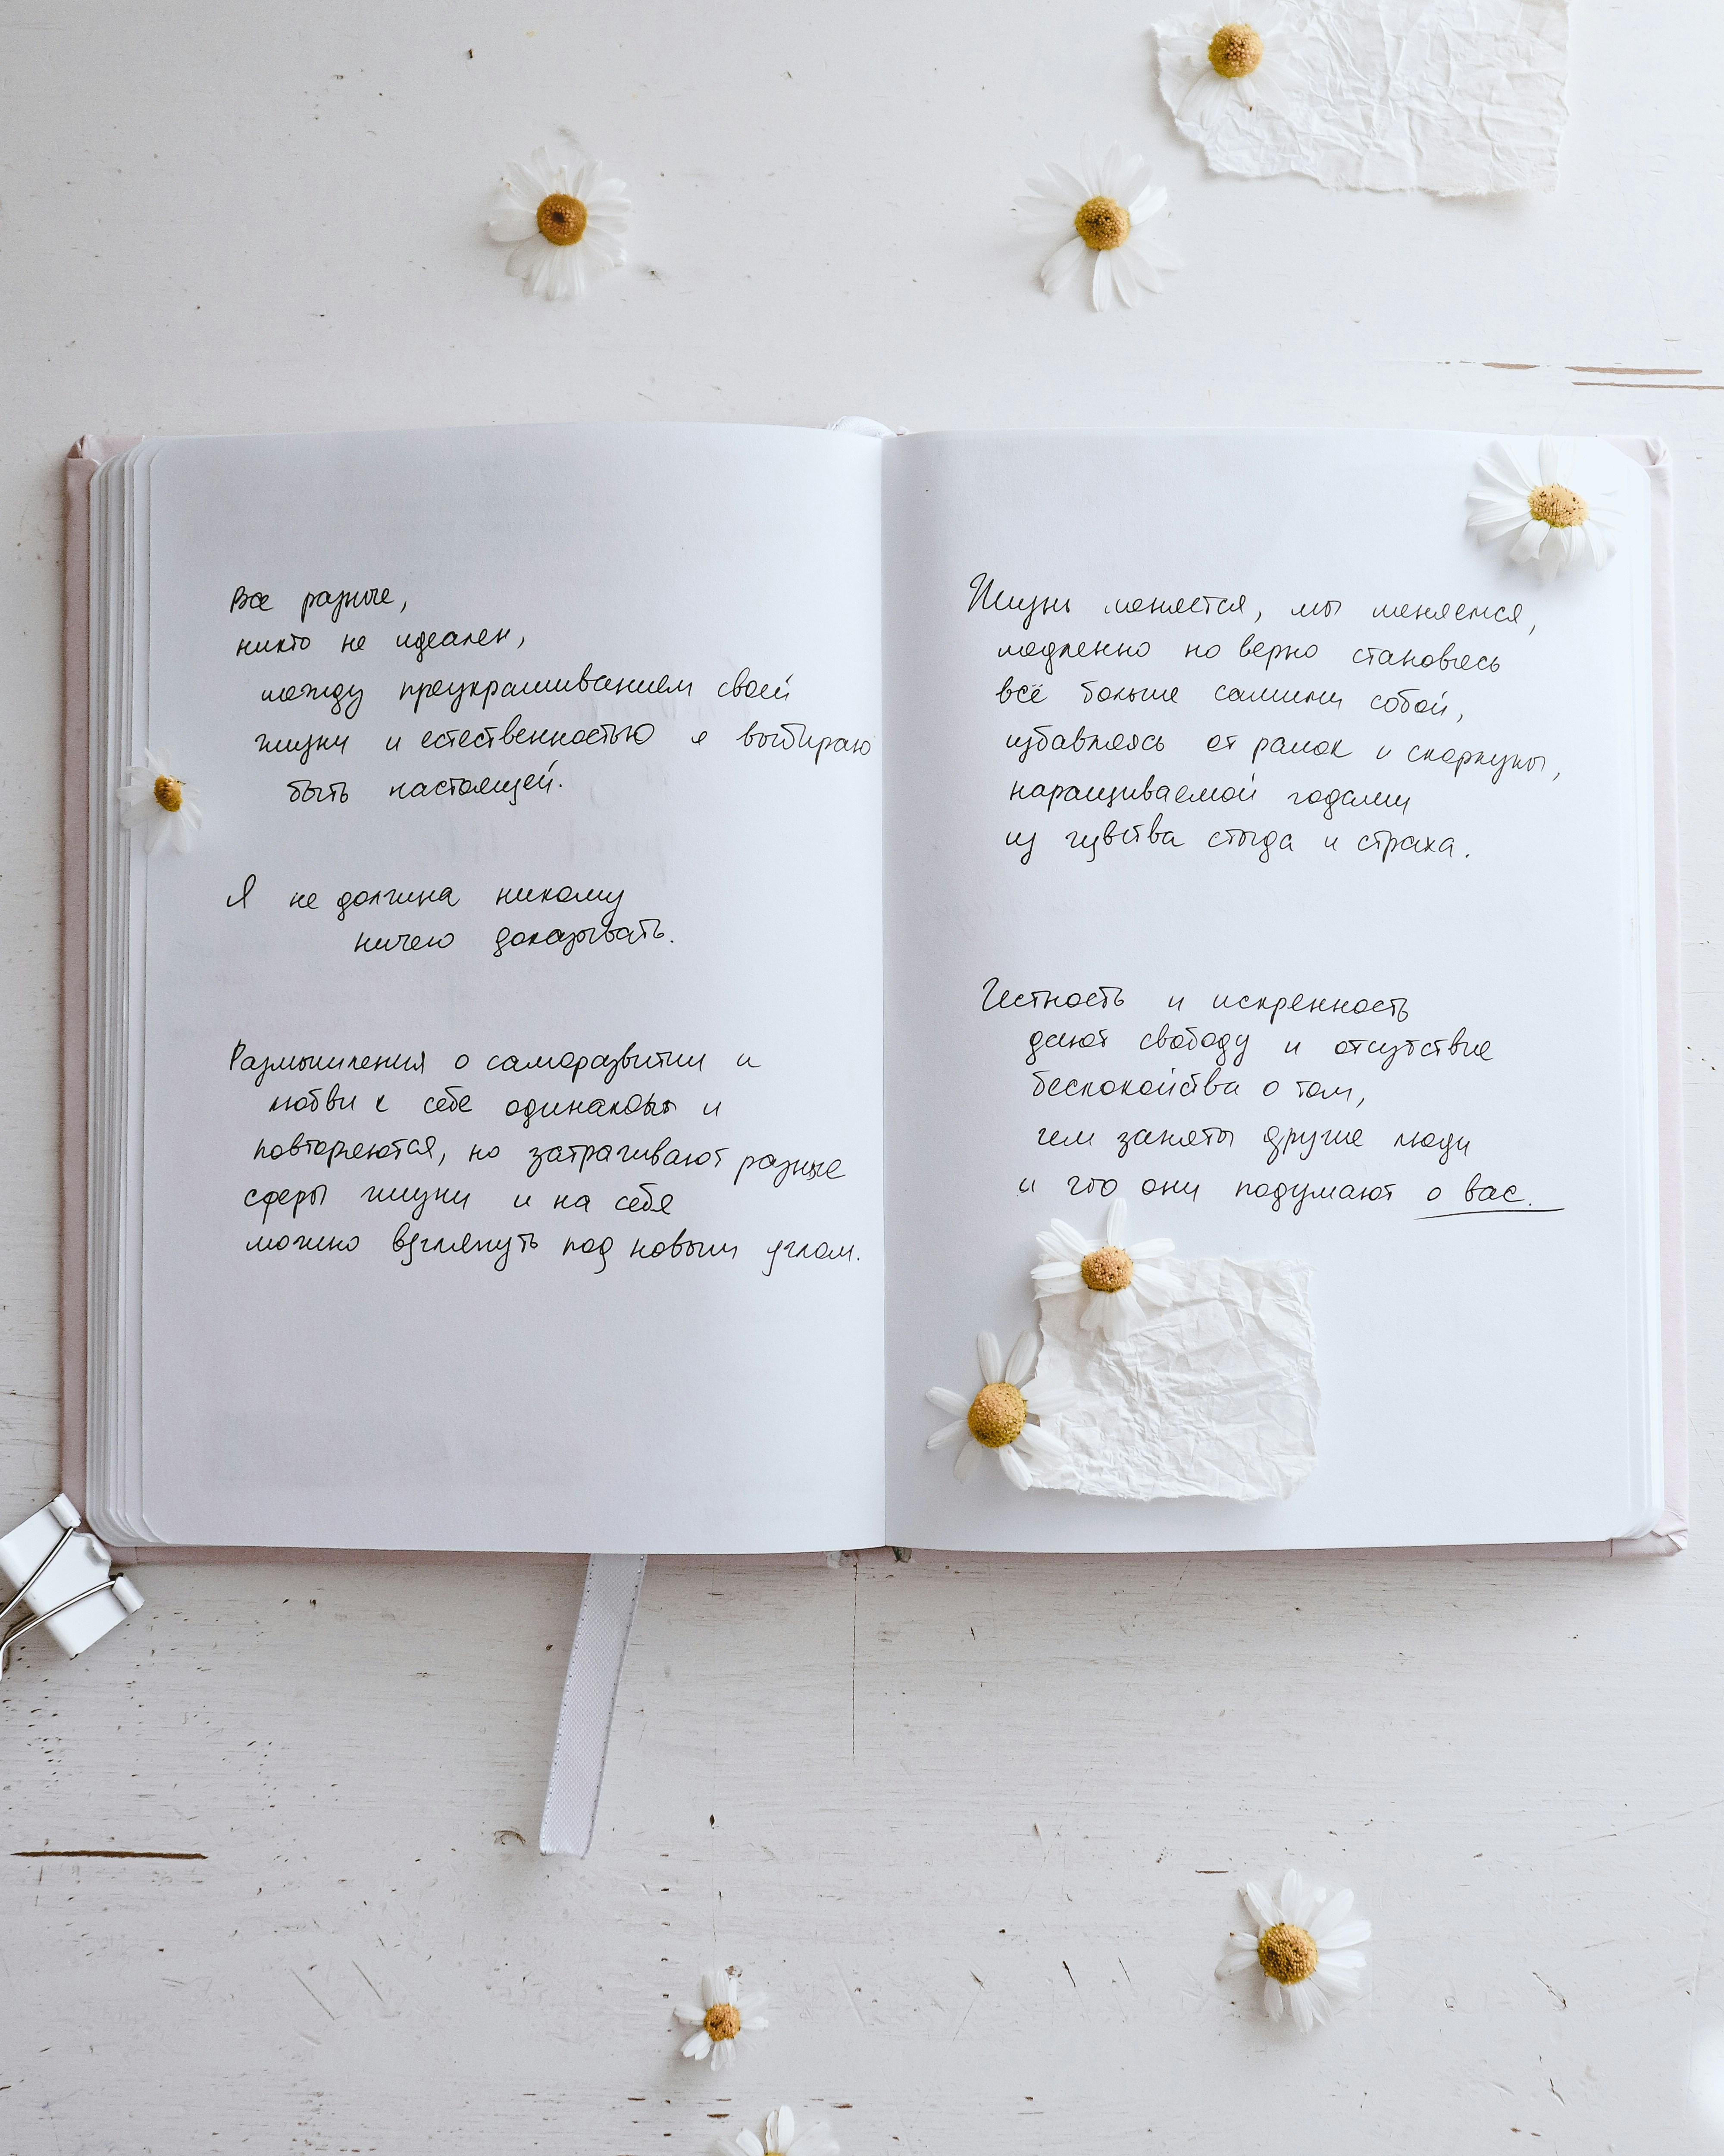 Все разные,
никто не идеален,
между преукрашиванием своей
жизни и естественностью я выбираю
быть настоящей.
Я не должна никому
ничего доказывать.
Размышления о саморазвитии и
любви к себе одинаковы и
повторяются, но затрагивают разные
сферы жизни и на себя
можно взглянуть под новым углом.
Жизнь меняется, мы меняемся,
медленно но верно становясь
всё больше самими собой,
избавляясь от рамок и скорлупы,
наращиваемой годами
из чувства стыда и страха.
Честность и искренность
дают свободу и отсутствие
беспокойства о том,
чем заняты другие люди
и что они подумают о вас.